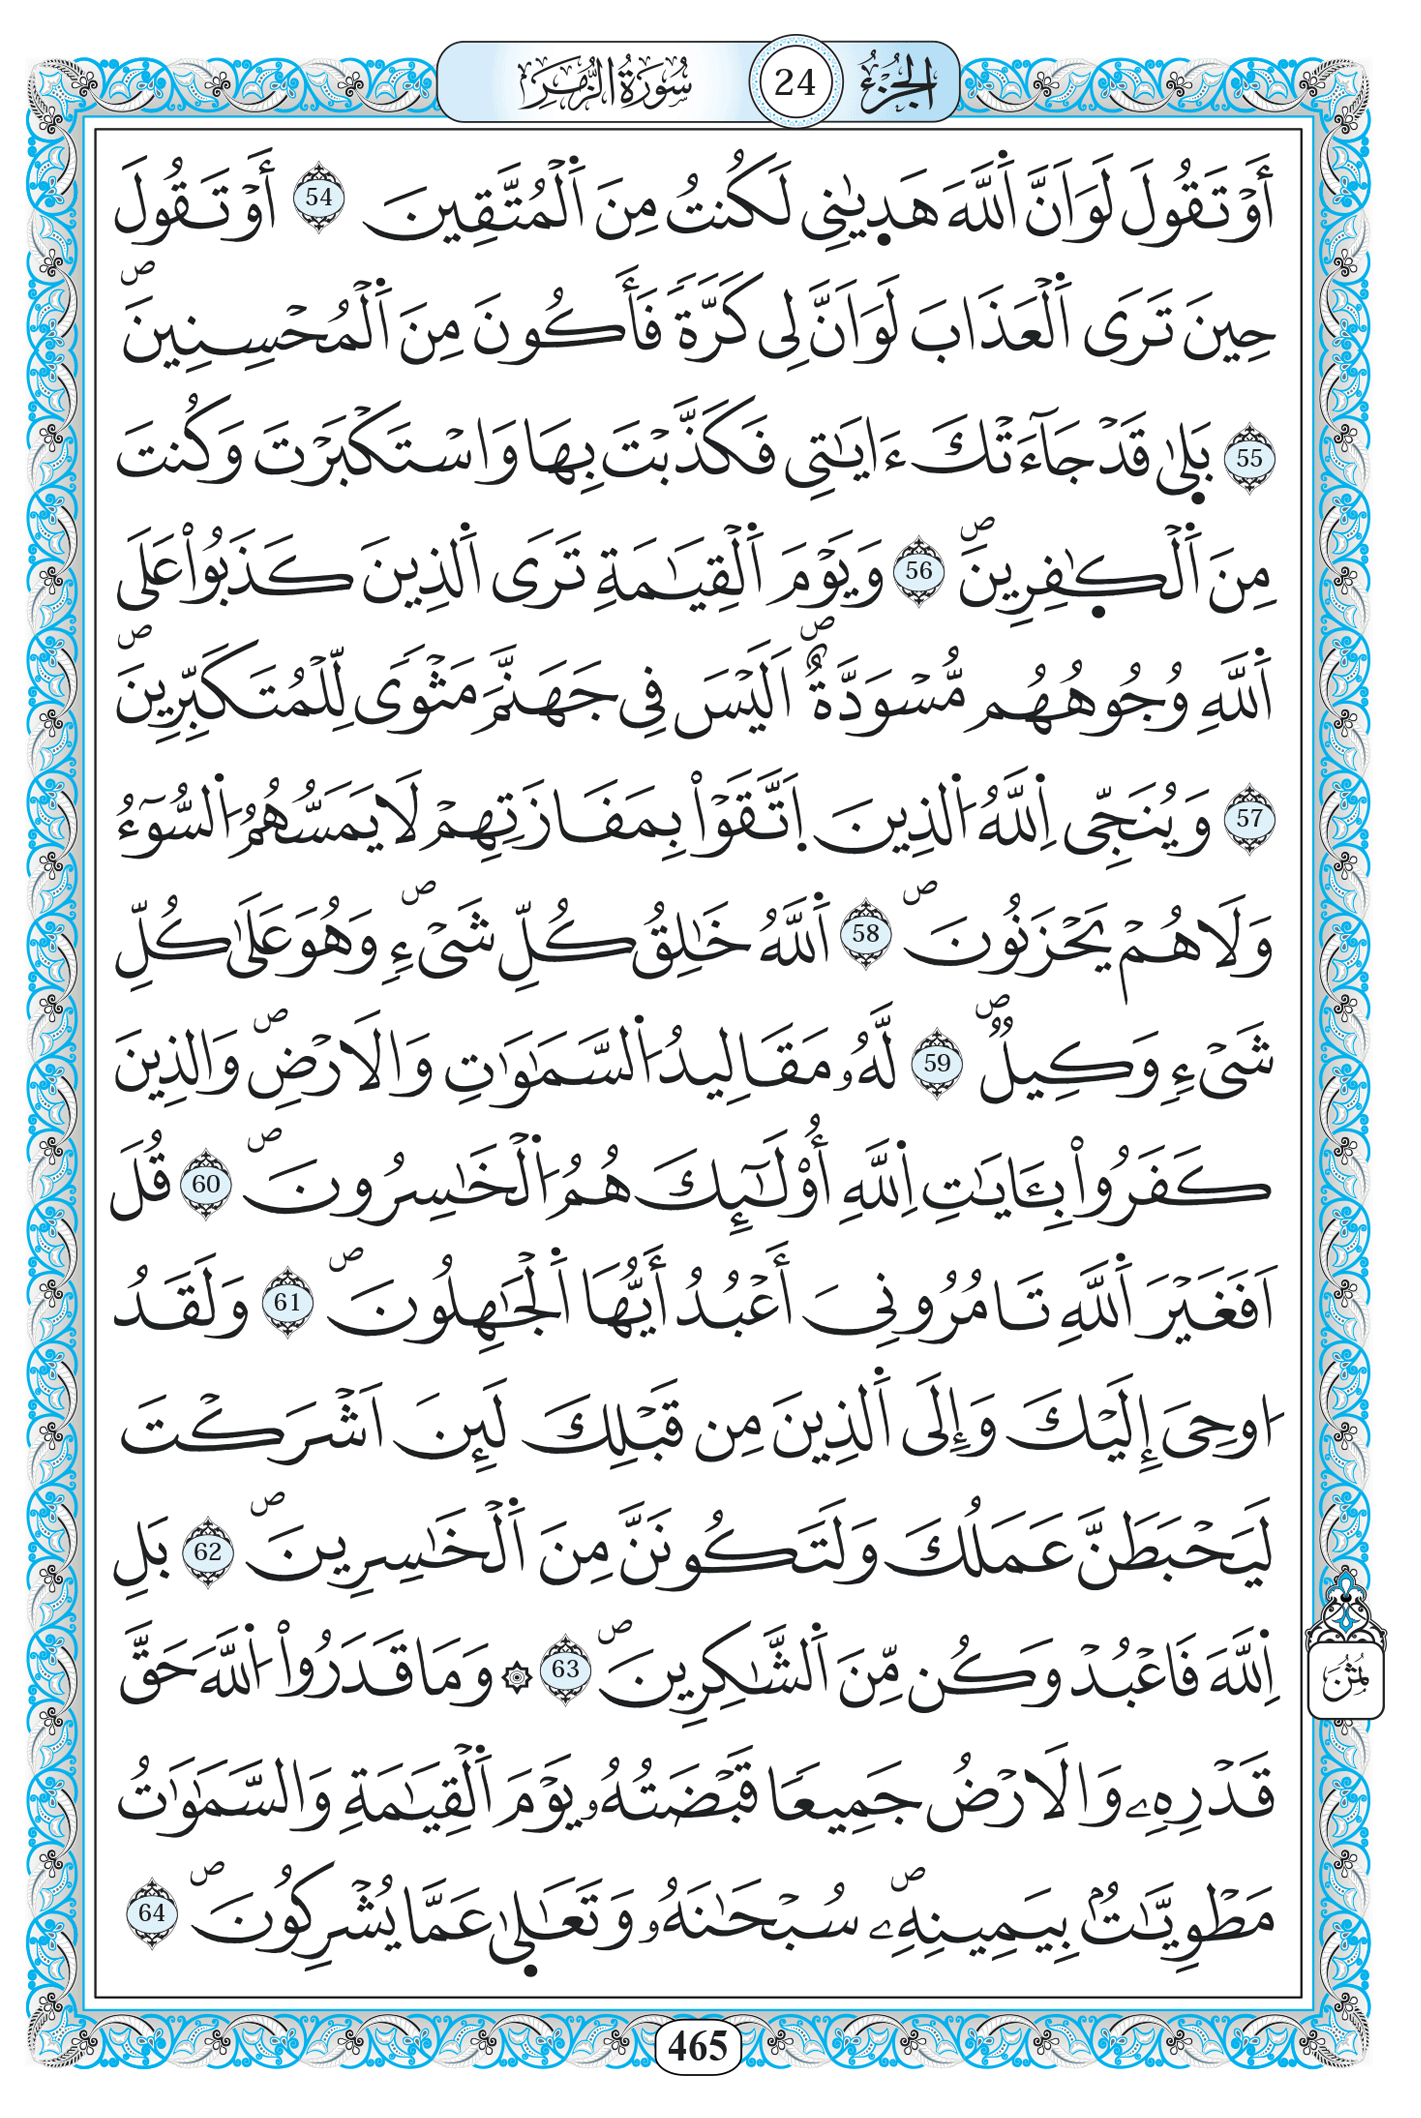 الجزء 24 سورة الزمر
أَوْ تَقُولَ لَوَ اَنَّ اَ۬للَّهَ هَد۪يٰنِي لَكُنتُ مِنَ اَ۬لْمُتَّقِينَ 54 أَوْ تَقُولَ
حِينَ تَرَى اَ۬لْعَذَابَ لَوَ اَنَّ لِي كَرَّةٗ فَأَكُونَ مِنَ اَ۬لْمُحْسِنِينَۖ
55 بَل۪يٰ قَدْ جَآءَتْكَ ءَايَٰتِي فَكَذَّبْتَ بِهَا وَاسْتَكْبَرْتَ وَكُنتَ
مِنَ اَ۬لْكٰ۪فِرِينَۖ 56 وَيَوْمَ اَ۬لْقِيَٰمَةِ تَرَى اَ۬لذِينَ كَذَبُواْ عَلَى
اَ۬للَّهِ وُجُوهُهُم مُّسْوَدَّةٌۖ اَلَيْسَ فِي جَهَنَّمَ مَثْوٗي لِّلْمُتَكَبِّرِينَۖ
57 وَيُنَجِّي اِ۬للَّهُ اُ۬لذِينَ اَ۪تَّقَوْاْ بِمَفَازَتِهِمْ لَا يَمَسُّهُمُ اُ۬لسُّوٓءُ
وَلَا هُمْ يَحْزَنُونَۖ 58 اَ۬للَّهُ خَٰلِقُ كُلِّ شَيْءٖۖ وَهُوَ عَلَىٰ كُلِّ
شَيْءٖ وَكِيلٞۖ 59 لَّهُۥ مَقَالِيدُ اُ۬لسَّمَٰوَٰتِ وَالَارْضِۖ وَالذِينَ
كَفَرُواْ بِـَٔايَٰتِ اِ۬للَّهِ أُوْلَٰٓئِكَ هُمُ اُ۬لْخَٰسِرُونَۖ 60 قُلَ
اَفَغَيْرَ اَ۬للَّهِ تَامُرُونِيَ أَعْبُدُ أَيُّهَا اَ۬لْجَٰهِلُونَۖ 61 وَلَقَدُ
ا۟وحِيَ إِلَيْكَ وَإِلَى اَ۬لذِينَ مِن قَبْلِكَ لَئِنَ اَشْرَكْتَ
لَيَحْبَطَنَّ عَمَلُكَ وَلَتَكُونَنَّ مِنَ اَ۬لْخَٰسِرِينَۖ 62 بَلِ
اِ۬للَّهَ فَاعْبُدْ وَكُن مِّنَ اَ۬لشَّٰكِرِينَۖ 63 ۞ وَمَا قَدَرُواْ اُ۬للَّهَ حَقَّ
قَدْرِهِۦ وَالَارْضُ جَمِيعاٗ قَبْضَتُهُۥ يَوْمَ اَ۬لْقِيَٰمَةِ وَالسَّمَٰوَٰتُ
مَطْوِيَّٰتُۢ بِيَمِينِهِۦۖ سُبْحَٰنَهُۥ وَتَعَٰل۪يٰ عَمَّا يُشْرِكُونَۖ 64
ثمن
465